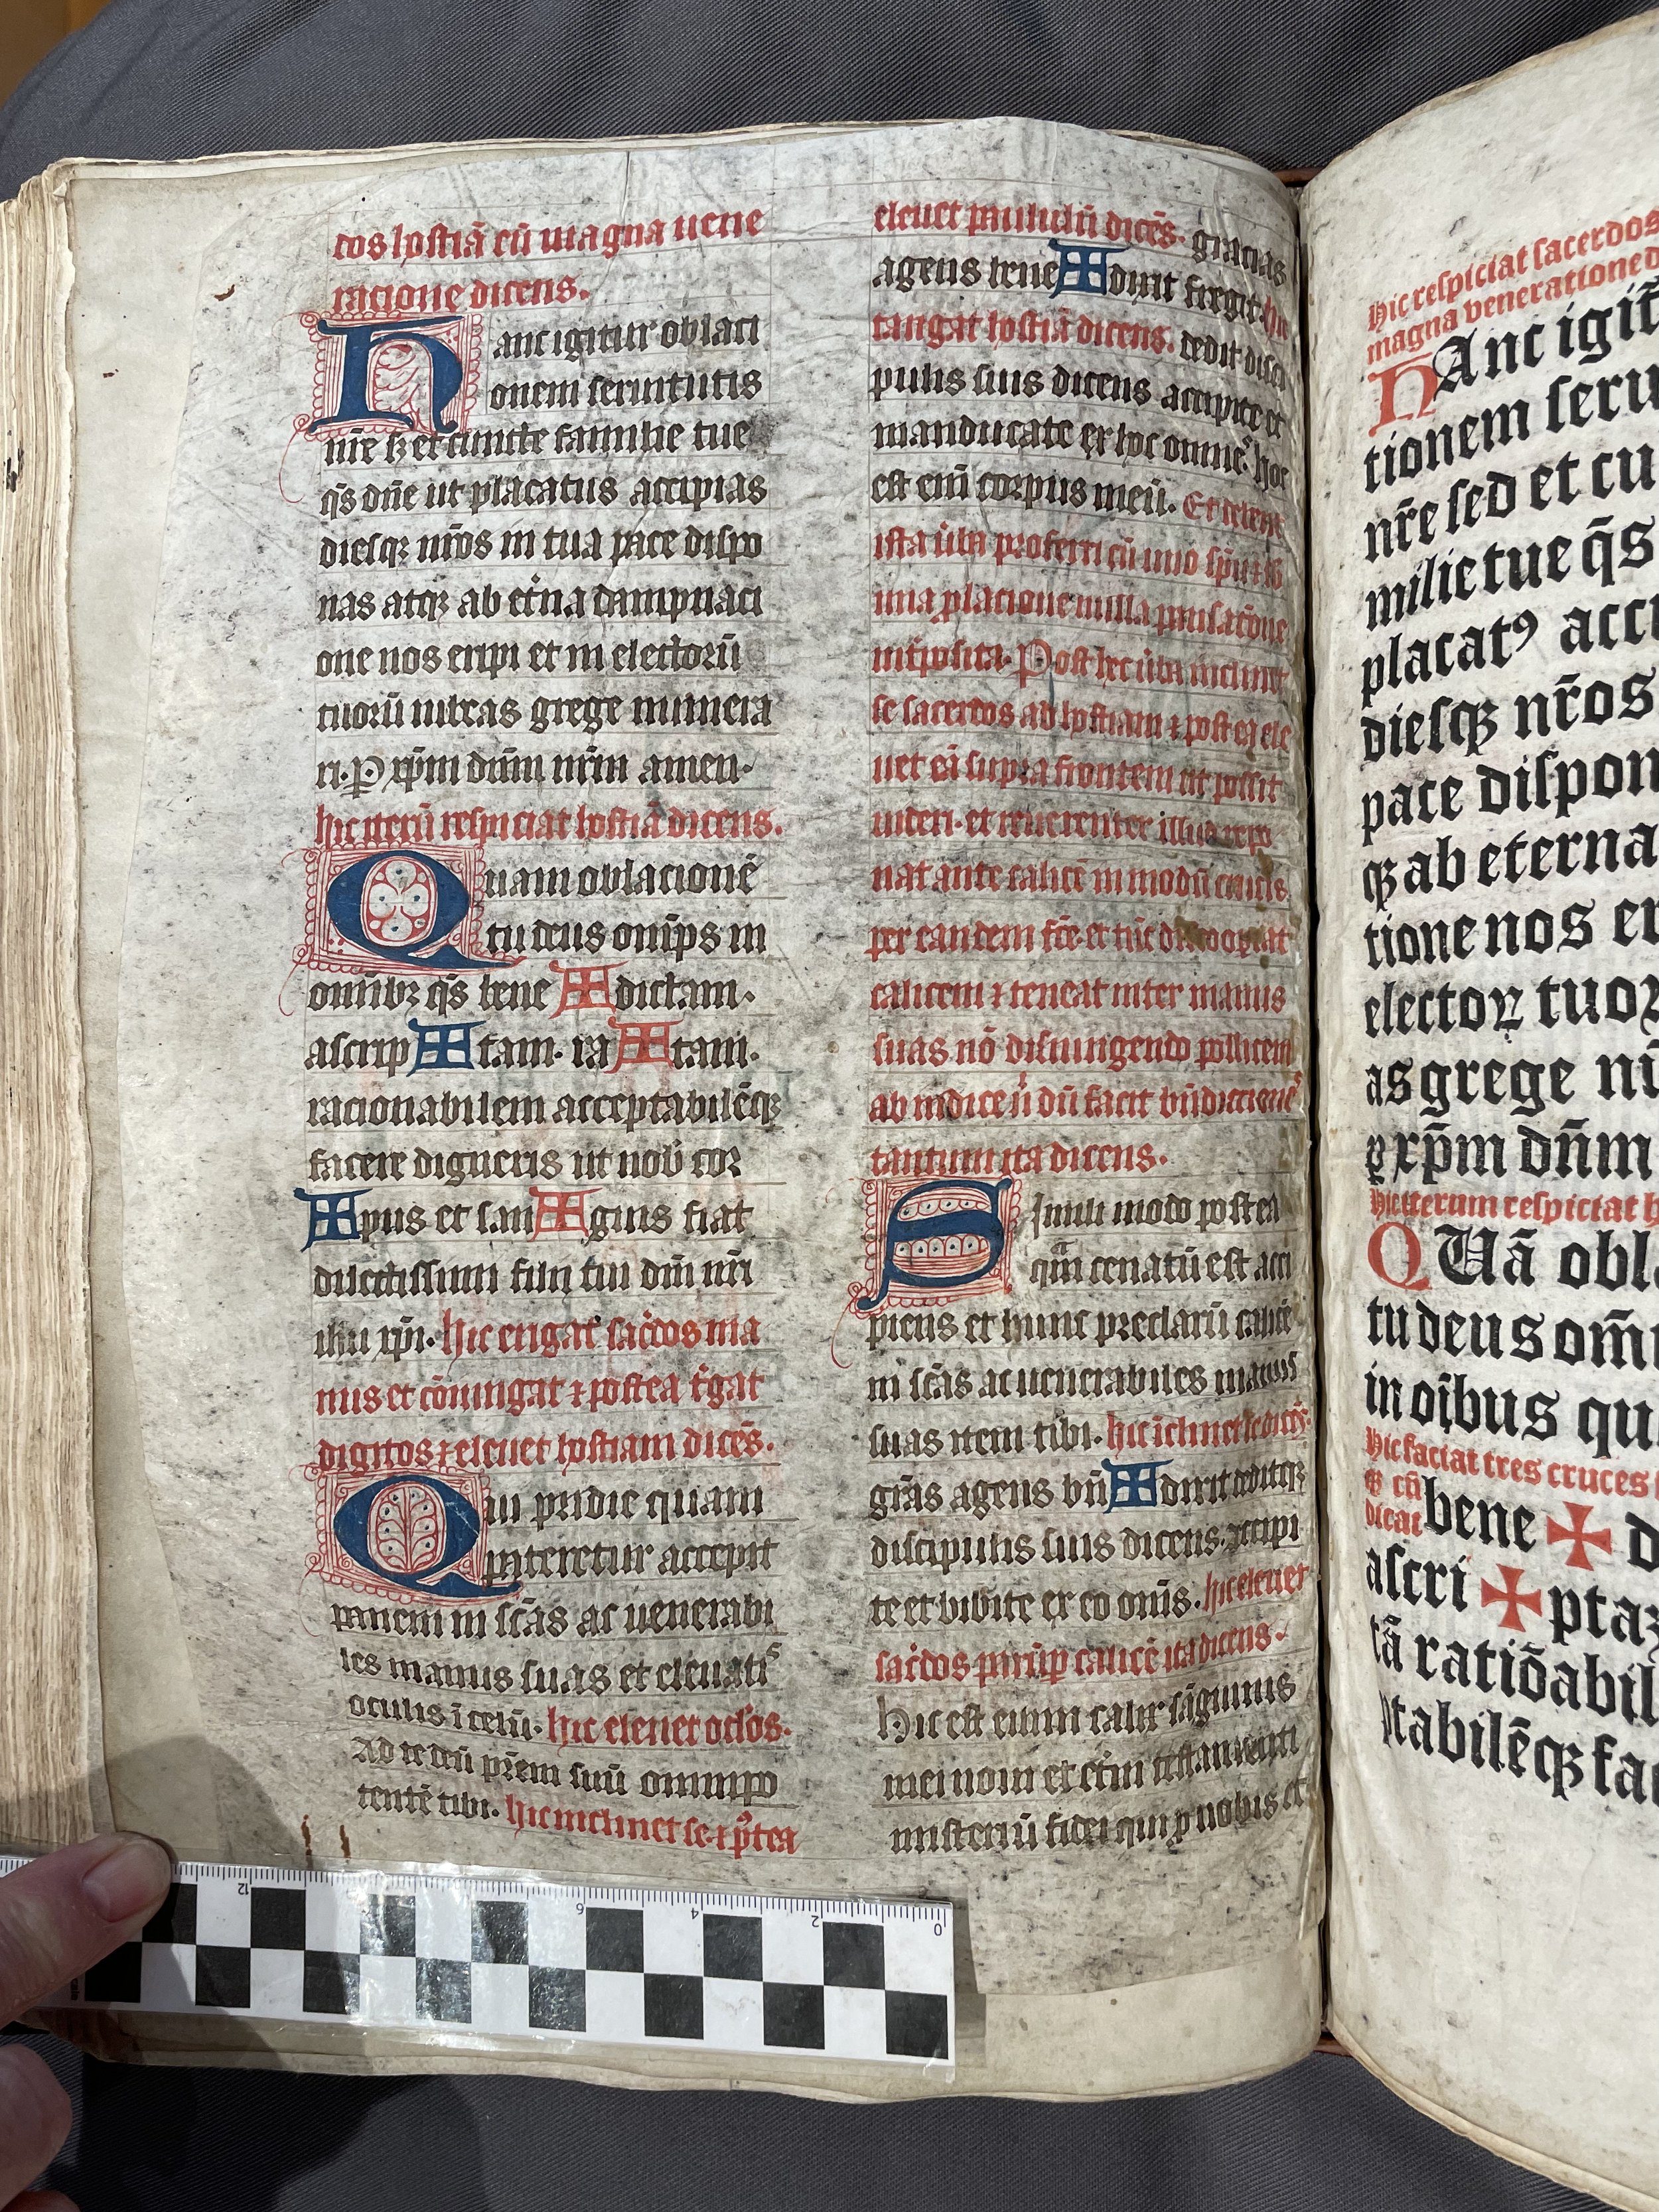 tos hostiā cū magna uene
racione dicens.
Hanc igitur oblaci
onem seruitutis
nr̄e sz et cuncte familie tue
q̄s dn̄e ut placatus accipias
diesqz nr̄os in tua pace dispo
nas atqz ab et̄na dampnaci
one nos eripi et in electorū
tuorū iubeas grege numera
ri. P xp̄m dūm nr̄m amen.
hic iterū respiciat hostiā dicens.
Quam oblacionē
tu deus om̄ps in
omībz q̄s bene ✠ dictam.
ascrip ✠ tam. ra ✠ tam.
racionabilem acceptabilēqz
facere digneris ut nob̄ cor
✠ pus et san ✠ guis fiat
dilectissimi filij tui dn̄i nr̄i
ihu xp̄i. hic erigat sac̄dos ma
nus et cōiungat ⁊ postea t̄gat
digitos ⁊ eleuet hostiam dicēs.
Qui pridie quam
pateretur accepit
panem in sc̄as ac uenerabi
les manus suas et eleuatis
oculis ī celū. hic eleuet oc̄los.
Ad te deū pr̄em suū omnipo
tentē tibi. hic inclinet se ⁊ p̄tea
eleuet paululū dicēs. gracias
agens bene ✠ dixit fregit. hic
tangat hostiā dicens. dedit disci
pulis suis dicens accipite et
manducate ex hoc omnes. hoc
est enī corpus meū. Et debent
ista ūba proferri cū uno sp̄u ⁊ sb
una placione nulla pausac̄one
int̄posita. Post hec ūba inclinet
se sacerdos ad hostiam ⁊ postea ele
uet eā supra frontem ut possit
uideri. et reuerenter illud repo
nat ante calicē in modū crucis
per eandem fc̄e. et tūc discooperiat
calicem ⁊ teneat inter manus
suas nō disiungendo pollicem
ab indice n̄ dū facit bn̄dictionē
tantum ita dicens.
Simili modo postea
qm̄ cenatū est acci
piens et hunc preclarū calicē
in sc̄as ac uenerabiles manus
suas item tibi. hic īclinet se dicēs.
gr̄as agens bn̄ ✠ dixit deditqz
discipulis suis dicens. accipi
te et bibite ex eo om̄s. hic eleuet
sac̄dos parūp calicē ita dicens.
Hic est enim calix sāguinis
mei noui et et̄ni testamenti
misteriū fidei qui p nobis et
hic respiciat sacerdos
magna veneratione d
HAnc igit̄
tionem seru
nr̄e sed et cu
milie tue q̄s
placatꝰ acci
diesqz nr̄os
pace dispon
qz ab eterna
tione nos er
electoꝝ tuoꝝ
as grege nū
p xp̄m dn̄m
Hic iterum respiciat h
QUā obla
tu deus om̄
in oībus qu
Hic faciat tres cruces s
⁊ cū
dicat bene ✠ d
ascri ✠ ptaz
tā ratiōabil
ptabilēqz fac